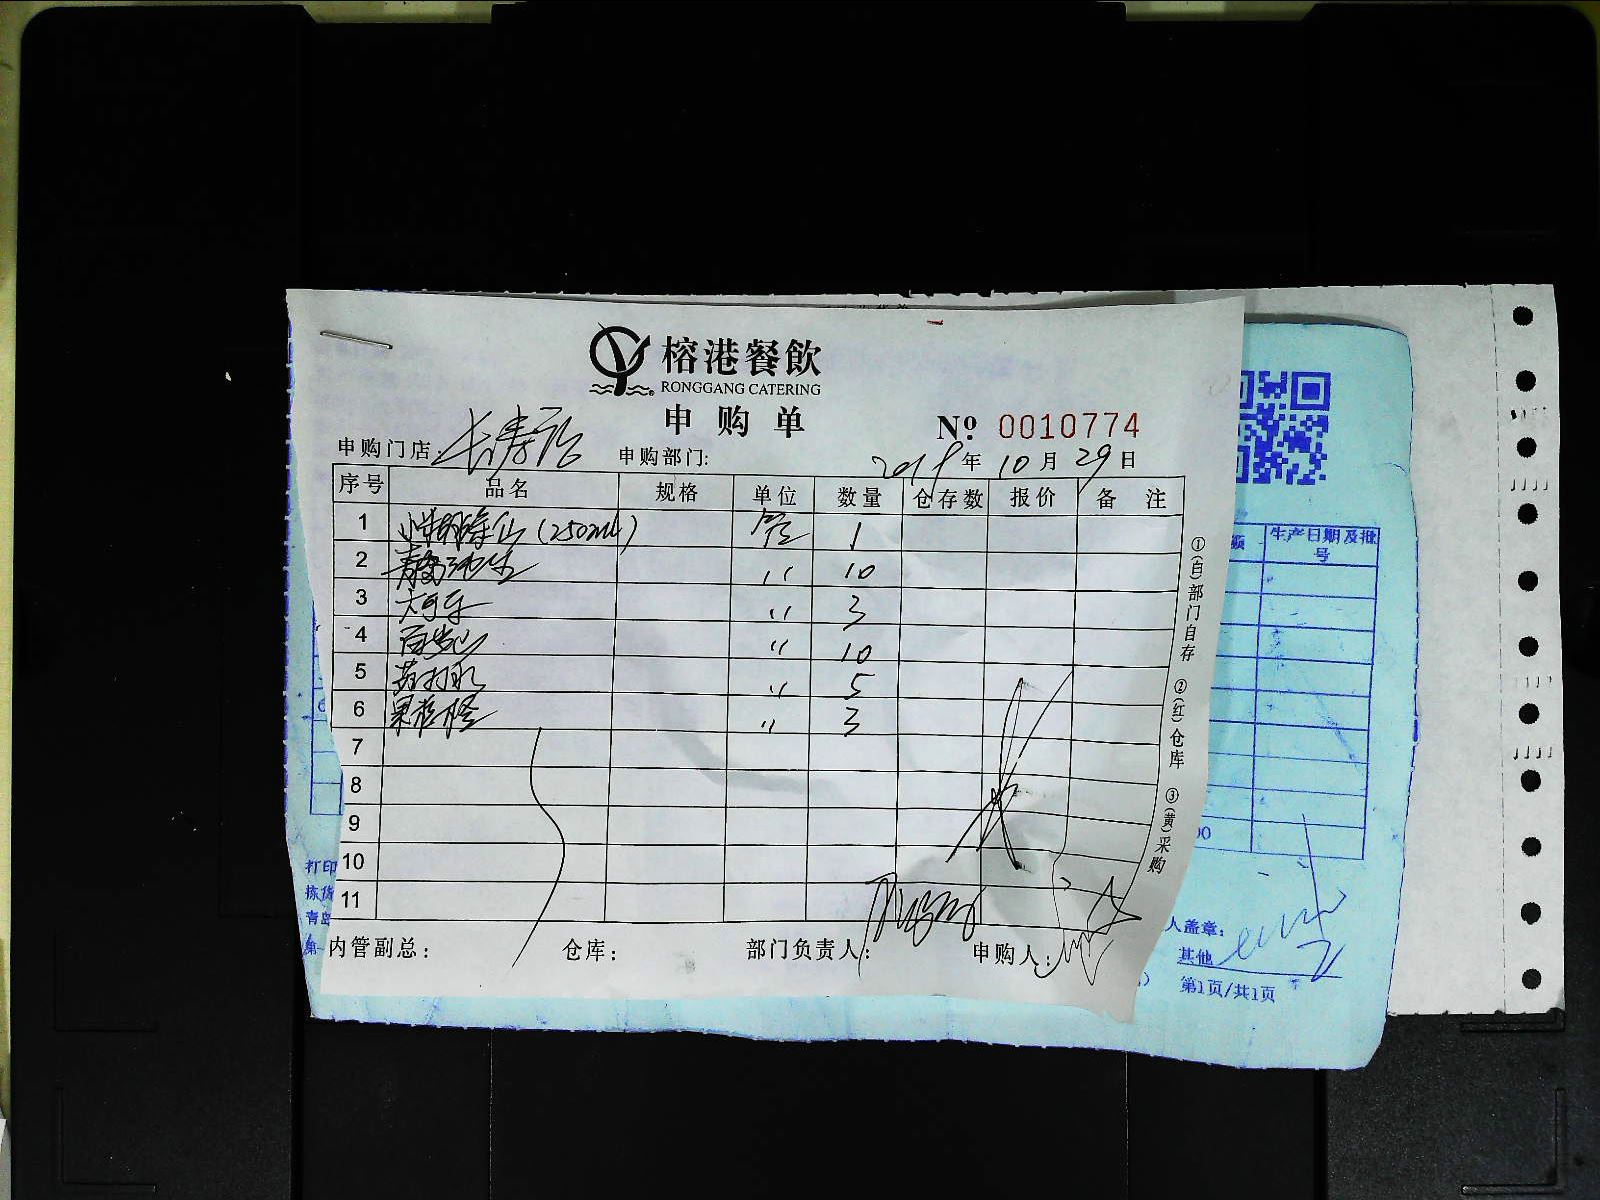 榕港餐飲
RONGGANG CATERING
申购单
Nº 0010774
申购门店: 长寿路 申购部门: 2019年10月29日
序号 品名 规格 单位 数量 仓存数 报价 备注
1 (250ml) 1
2 〃 10
3 大可乐 〃 3
4 百岁山 〃 10
5 苏打水 〃 5
6 果粒橙 〃 3
7
8
9
10
11
内管副总: 仓库: 部门负责人: 申购人:
①(白)部门自存 ②(红)仓库 ③(黄)采购
额 生产日期及批号
00
打印
拣货
青岛
第一
人盖章:
其他
第1页/共1页